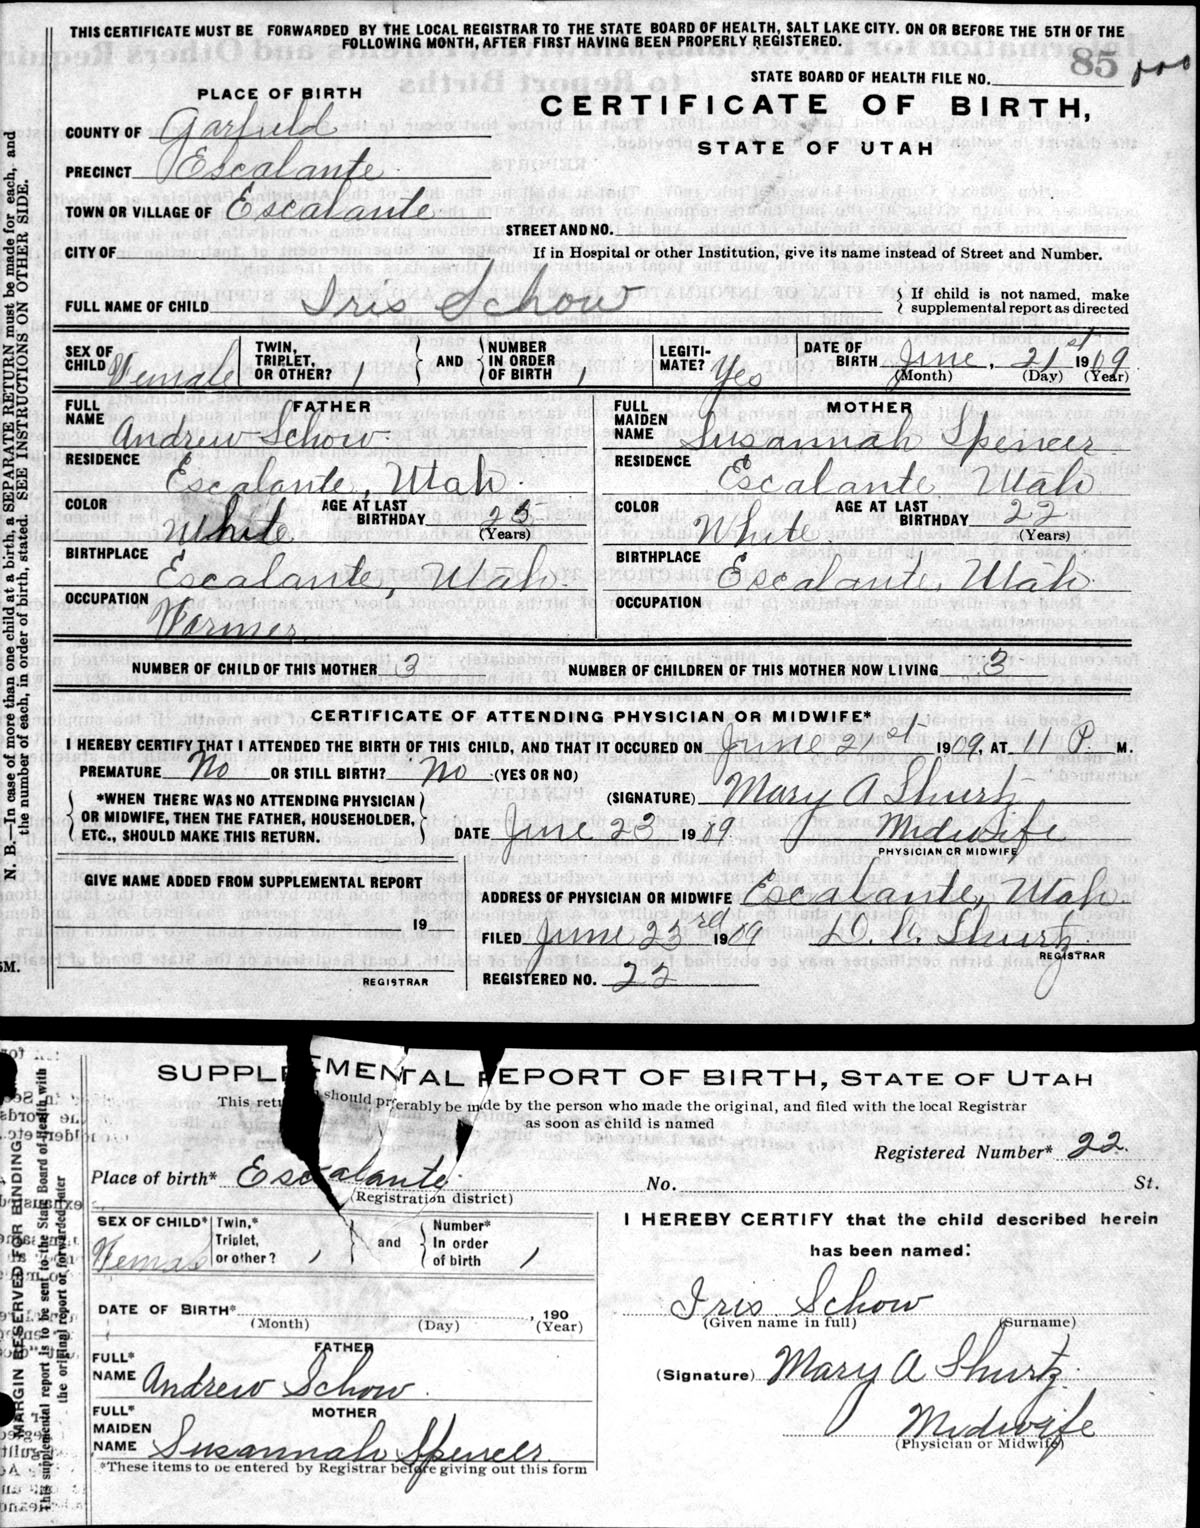 THIS CERTIFICATE MUST BE FORWARDED BY THE LOCAL REGISTRAR TO THE STATE BOARD OF HEALTH, SALT LAKE CITY. ON OR BEFORE THE 5TH OF THE
FOLLOWING MONTH, AFTER FIRST HAVING BEEN PROPERLY REGISTERED.
85
STATE BOARD OF HEALTH FILE NO.
PLACE OF BIRTH
CERTIFICATE OF BIRTH,
STATE OF UTAH
COUNTY OF Garfield
PRECINCT Escalante
TOWN OR VILLAGE OF Escalante
STREET AND NO.
CITY OF
If in Hospital or other Institution, give its name instead of Street and Number.
FULL NAME OF CHILD Iris Schow
{ If child is not named, make
supplemental report as directed
SEX OF CHILD Female
TWIN, TRIPLET, OR OTHER? 1 } AND { NUMBER IN ORDER OF BIRTH 1
LEGITIMATE? Yes
DATE OF BIRTH June, 21st 1909
(Month) (Day) (Year)
FATHER
FULL NAME Andrew Schow
RESIDENCE Escalante, Utah
COLOR White AGE AT LAST BIRTHDAY 23
(Years)
BIRTHPLACE Escalante, Utah
OCCUPATION Farmer
MOTHER
FULL MAIDEN NAME Susannah Spencer
RESIDENCE Escalante Utah
COLOR White AGE AT LAST BIRTHDAY 22
(Years)
BIRTHPLACE Escalante, Utah
OCCUPATION
NUMBER OF CHILD OF THIS MOTHER 3 NUMBER OF CHILDREN OF THIS MOTHER NOW LIVING 3
CERTIFICATE OF ATTENDING PHYSICIAN OR MIDWIFE*
I HEREBY CERTIFY THAT I ATTENDED THE BIRTH OF THIS CHILD, AND THAT IT OCCURED ON June 21st 1909, AT 11 P. M.
PREMATURE No OR STILL BIRTH? No (YES OR NO)
{ *WHEN THERE WAS NO ATTENDING PHYSICIAN
OR MIDWIFE, THEN THE FATHER, HOUSEHOLDER,
ETC., SHOULD MAKE THIS RETURN. }
(SIGNATURE) Mary A Shurtz
DATE June 23 1909. Midwife
PHYSICIAN OR MIDWIFE
GIVE NAME ADDED FROM SUPPLEMENTAL REPORT
19
REGISTRAR
ADDRESS OF PHYSICIAN OR MIDWIFE Escalante, Utah.
FILED June 23rd 1909 Shurtz
REGISTRAR
REGISTERED NO. 22
N. B.—In case of more than one child at a birth, a SEPARATE RETURN must be made for each, and
the number of each, in order of birth, stated. SEE INSTRUCTIONS ON OTHER SIDE.
5M.
SUPPLEMENTAL REPORT OF BIRTH, STATE OF UTAH
This return should preferably be made by the person who made the original, and filed with the local Registrar
as soon as child is named
Registered Number* 22
Place of birth* Escalante No. St.
(Registration district)
SEX OF CHILD* Female
Twin,* Triplet, or other? 1 } and { Number* In order of birth 1
DATE OF BIRTH* , 190
(Month) (Day) (Year)
FATHER
FULL* NAME Andrew Schow
MOTHER
FULL* MAIDEN NAME Susannah Spencer
*These items to be entered by Registrar before giving out this form
I HEREBY CERTIFY that the child described herein
has been named:
Iris Schow
(Given name in full) (Surname)
(Signature) Mary A Shurtz
Midwife
(Physician or Midwife)
MARGIN RESERVED FOR BINDING
This supplemental report is to be sent to the State Board of Health with
the original report or forwarded later